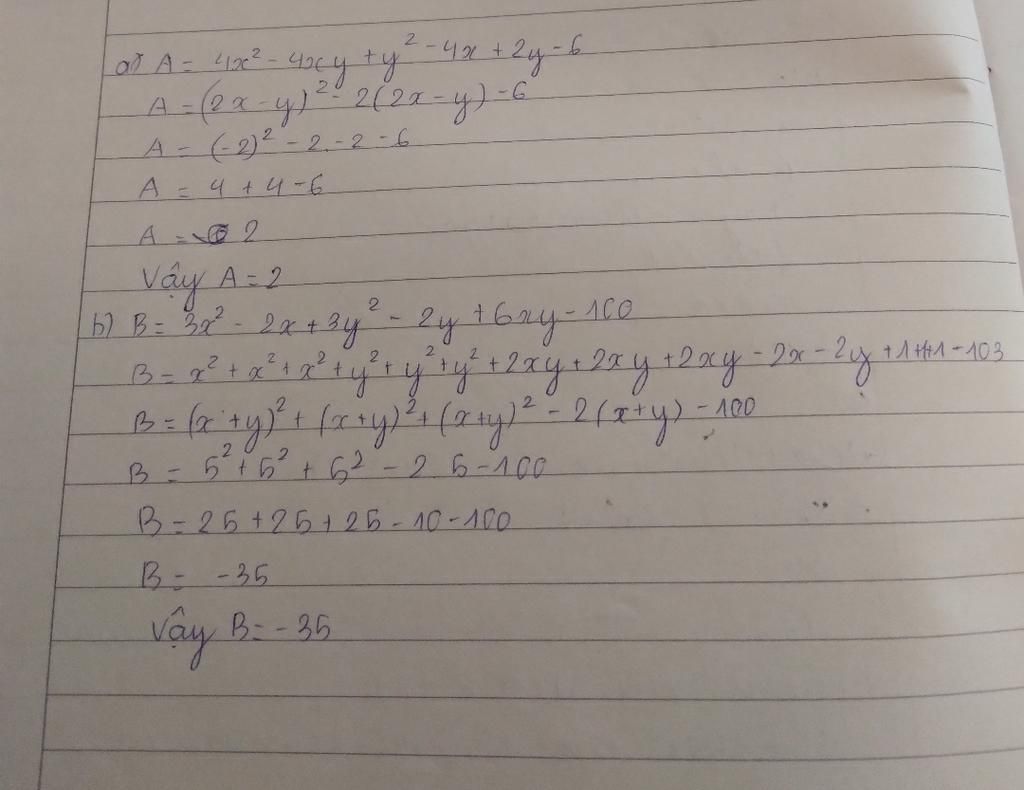 a) A = 4x² - 4xy + y² - 4x + 2y - 6
A = (2x - y)² - 2(2x - y) - 6
A = (-2)² - 2. -2 - 6
A = 4 + 4 - 6
A = 2
Vậy A = 2
b) B = 3x² - 2x + 3y² - 2y + 6xy - 100
B = x² + x² + x² + y² + y² + y² + 2xy + 2xy + 2xy - 2x - 2y + 1+1+1 - 103
B = (x + y)² + (x + y)² + (x + y)² - 2(x + y) - 100
B = 5² + 5² + 5² - 2.5 - 100
B = 25 + 25 + 25 - 10 - 100
B = -35
Vậy B = -35